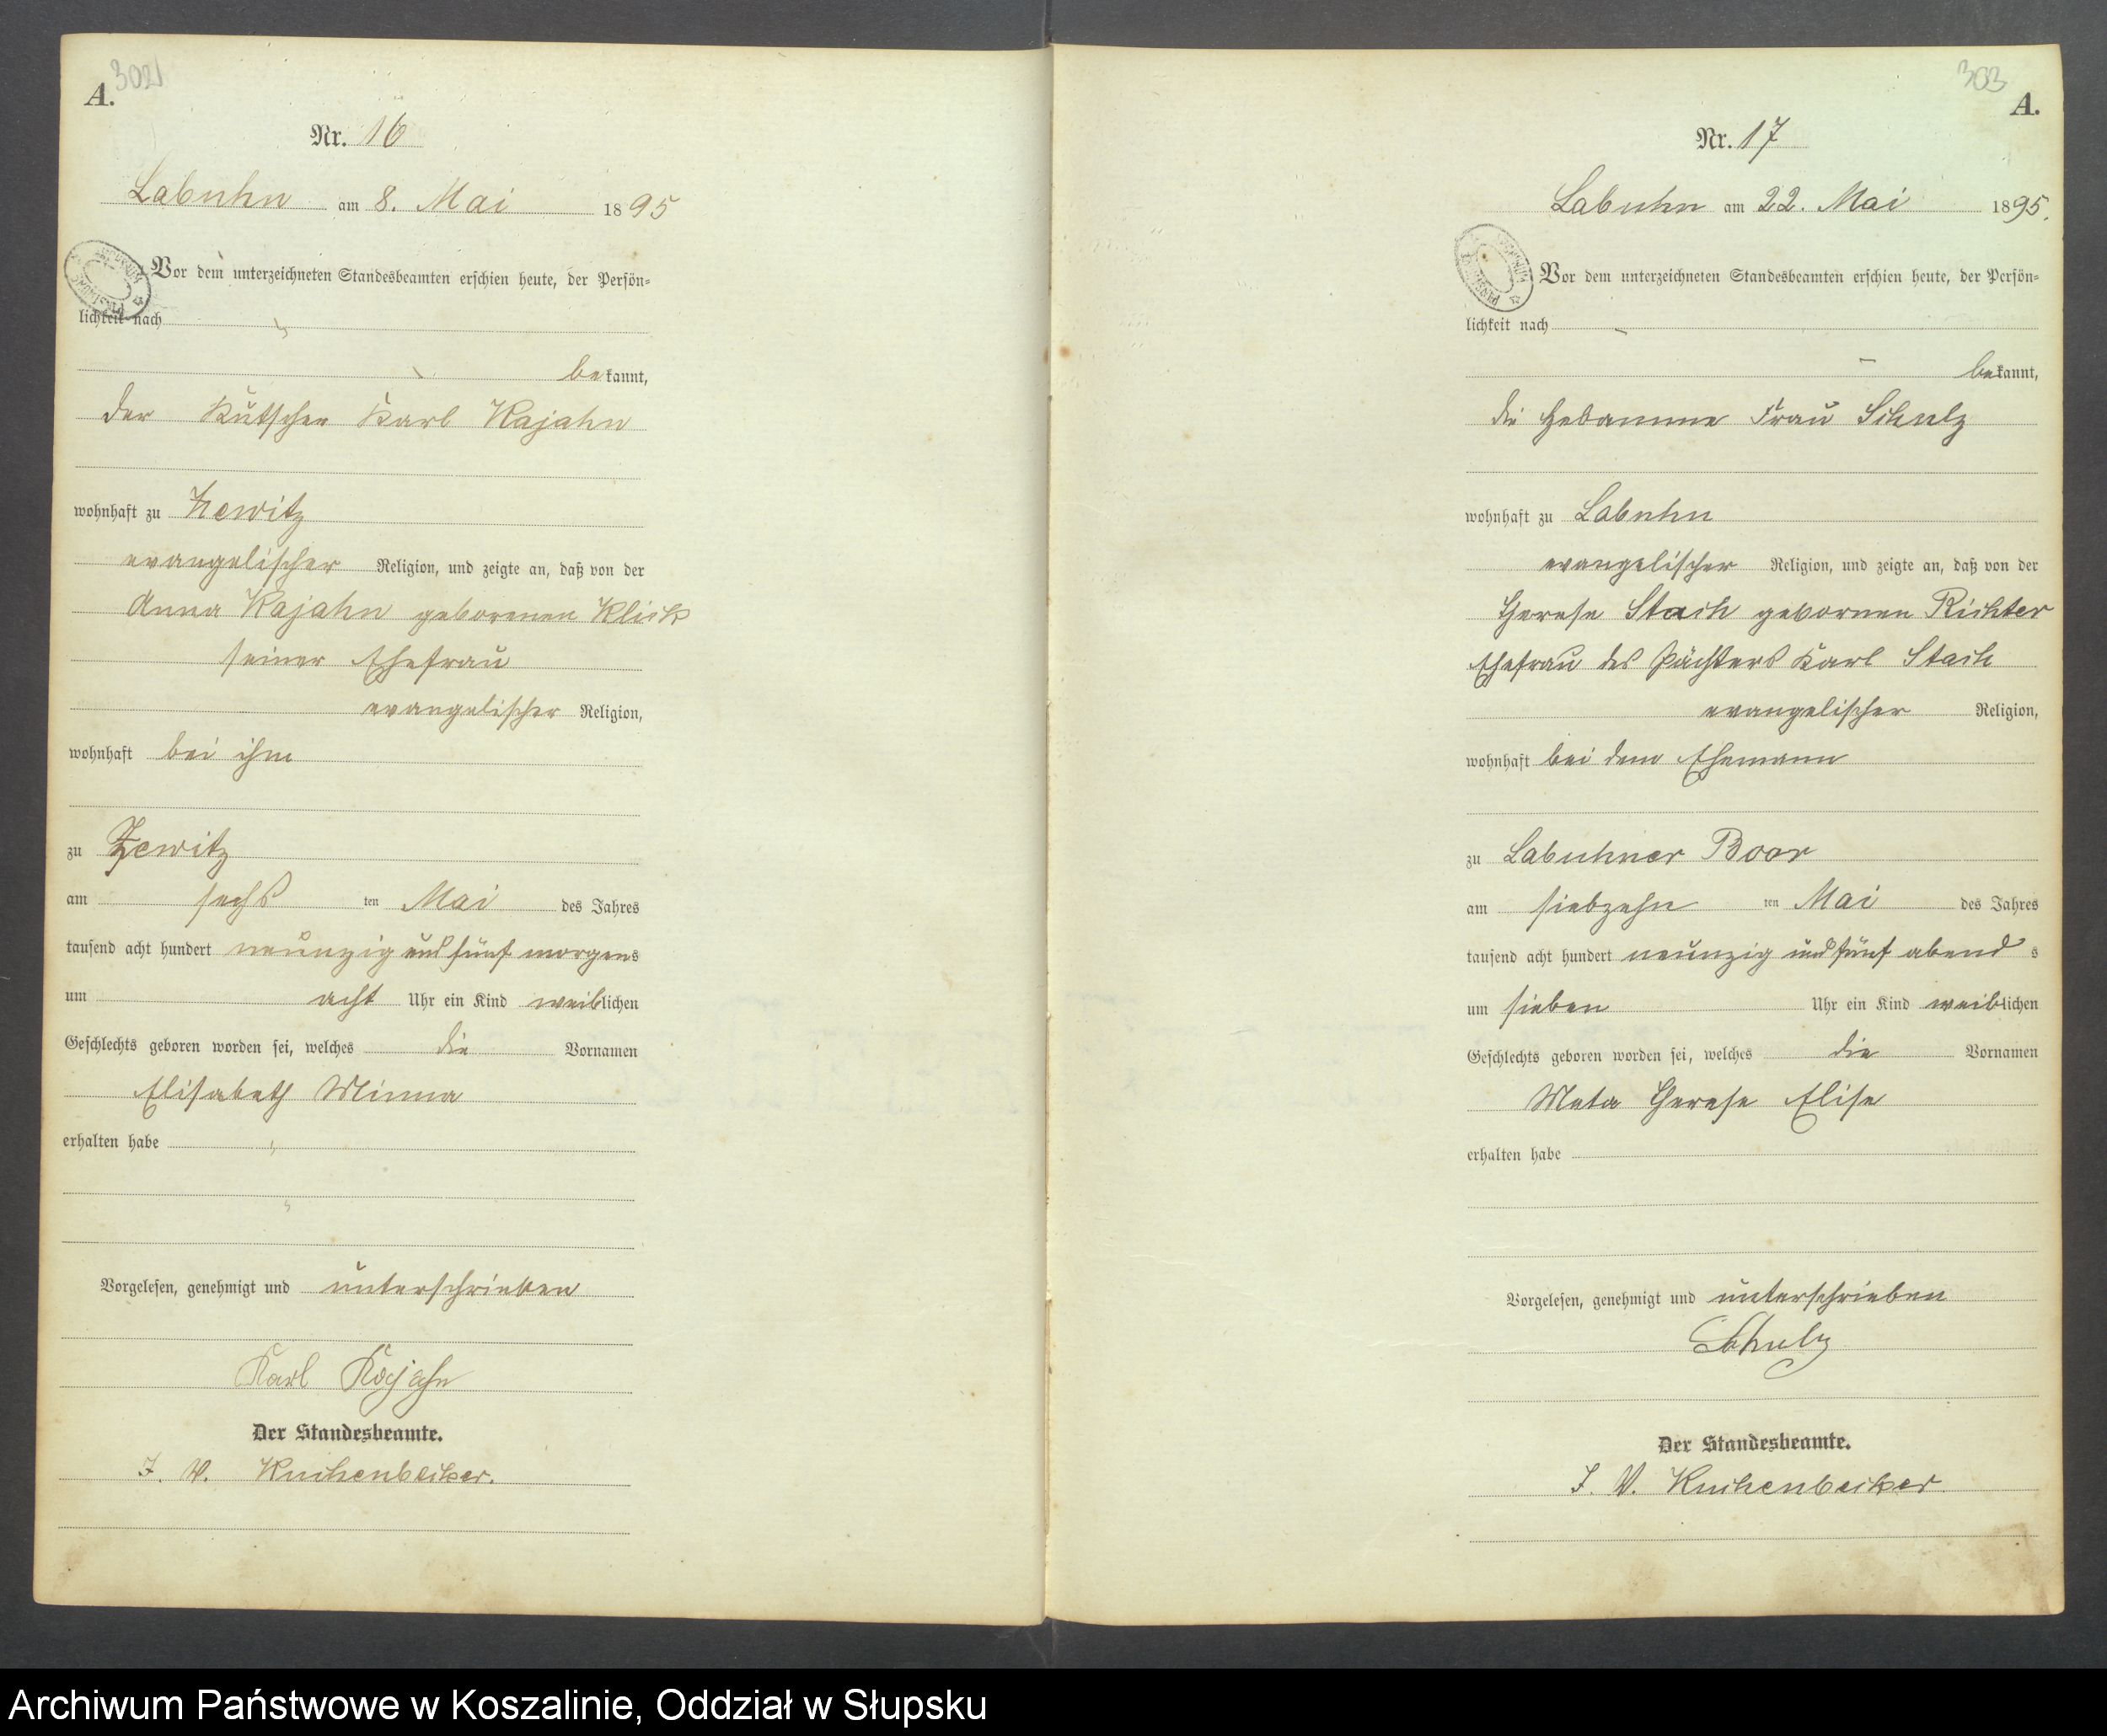 302
A.
Nr. 16
Labuhn am 8. Mai 1895
Vor dem unterzeichneten Standesbeamten erschien heute, der Persön=
lichkeit nach
bekannt,
der Kutscher Karl Kajahn
wohnhaft zu Zewitz
evangelischer Religion, und zeigte an, daß von der
Anna Kajahn geborenen Klick
seiner Ehefrau
evangelischer Religion,
wohnhaft bei ihm
zu Zewitz
am sechs ten Mai des Jahres
tausend acht hundert neunzig und fünf morgens
um acht Uhr ein Kind weiblichen
Geschlechts geboren worden sei, welches die Vornamen
Elisabeth Minna
erhalten habe
Vorgelesen, genehmigt und unterschrieben
Karl Kajahn
Der Standesbeamte.
J. V. Kuchenbecker.
303
A.
Nr. 17
Labuhn am 22. Mai 1895.
Vor dem unterzeichneten Standesbeamten erschien heute, der Persön=
lichkeit nach
bekannt,
die Hebamme Frau Schulz
wohnhaft zu Labuhn
evangelischer Religion, und zeigte an, daß von der
Therese Stach gebornen Richter
Ehefrau des Pächters Karl Stach
evangelischer Religion,
wohnhaft bei dem Ehemann
zu Labuhner Boor
am siebzehn ten Mai des Jahres
tausend acht hundert neunzig und fünf abend s
um sieben Uhr ein Kind weiblichen
Geschlechts geboren worden sei, welches die Vornamen
Meta Therese Elise
erhalten habe
Vorgelesen, genehmigt und unterschrieben
Schulz
Der Standesbeamte.
J. V. Kuchenbecker
Archiwum Państwowe w Koszalinie, Oddział w Słupsku